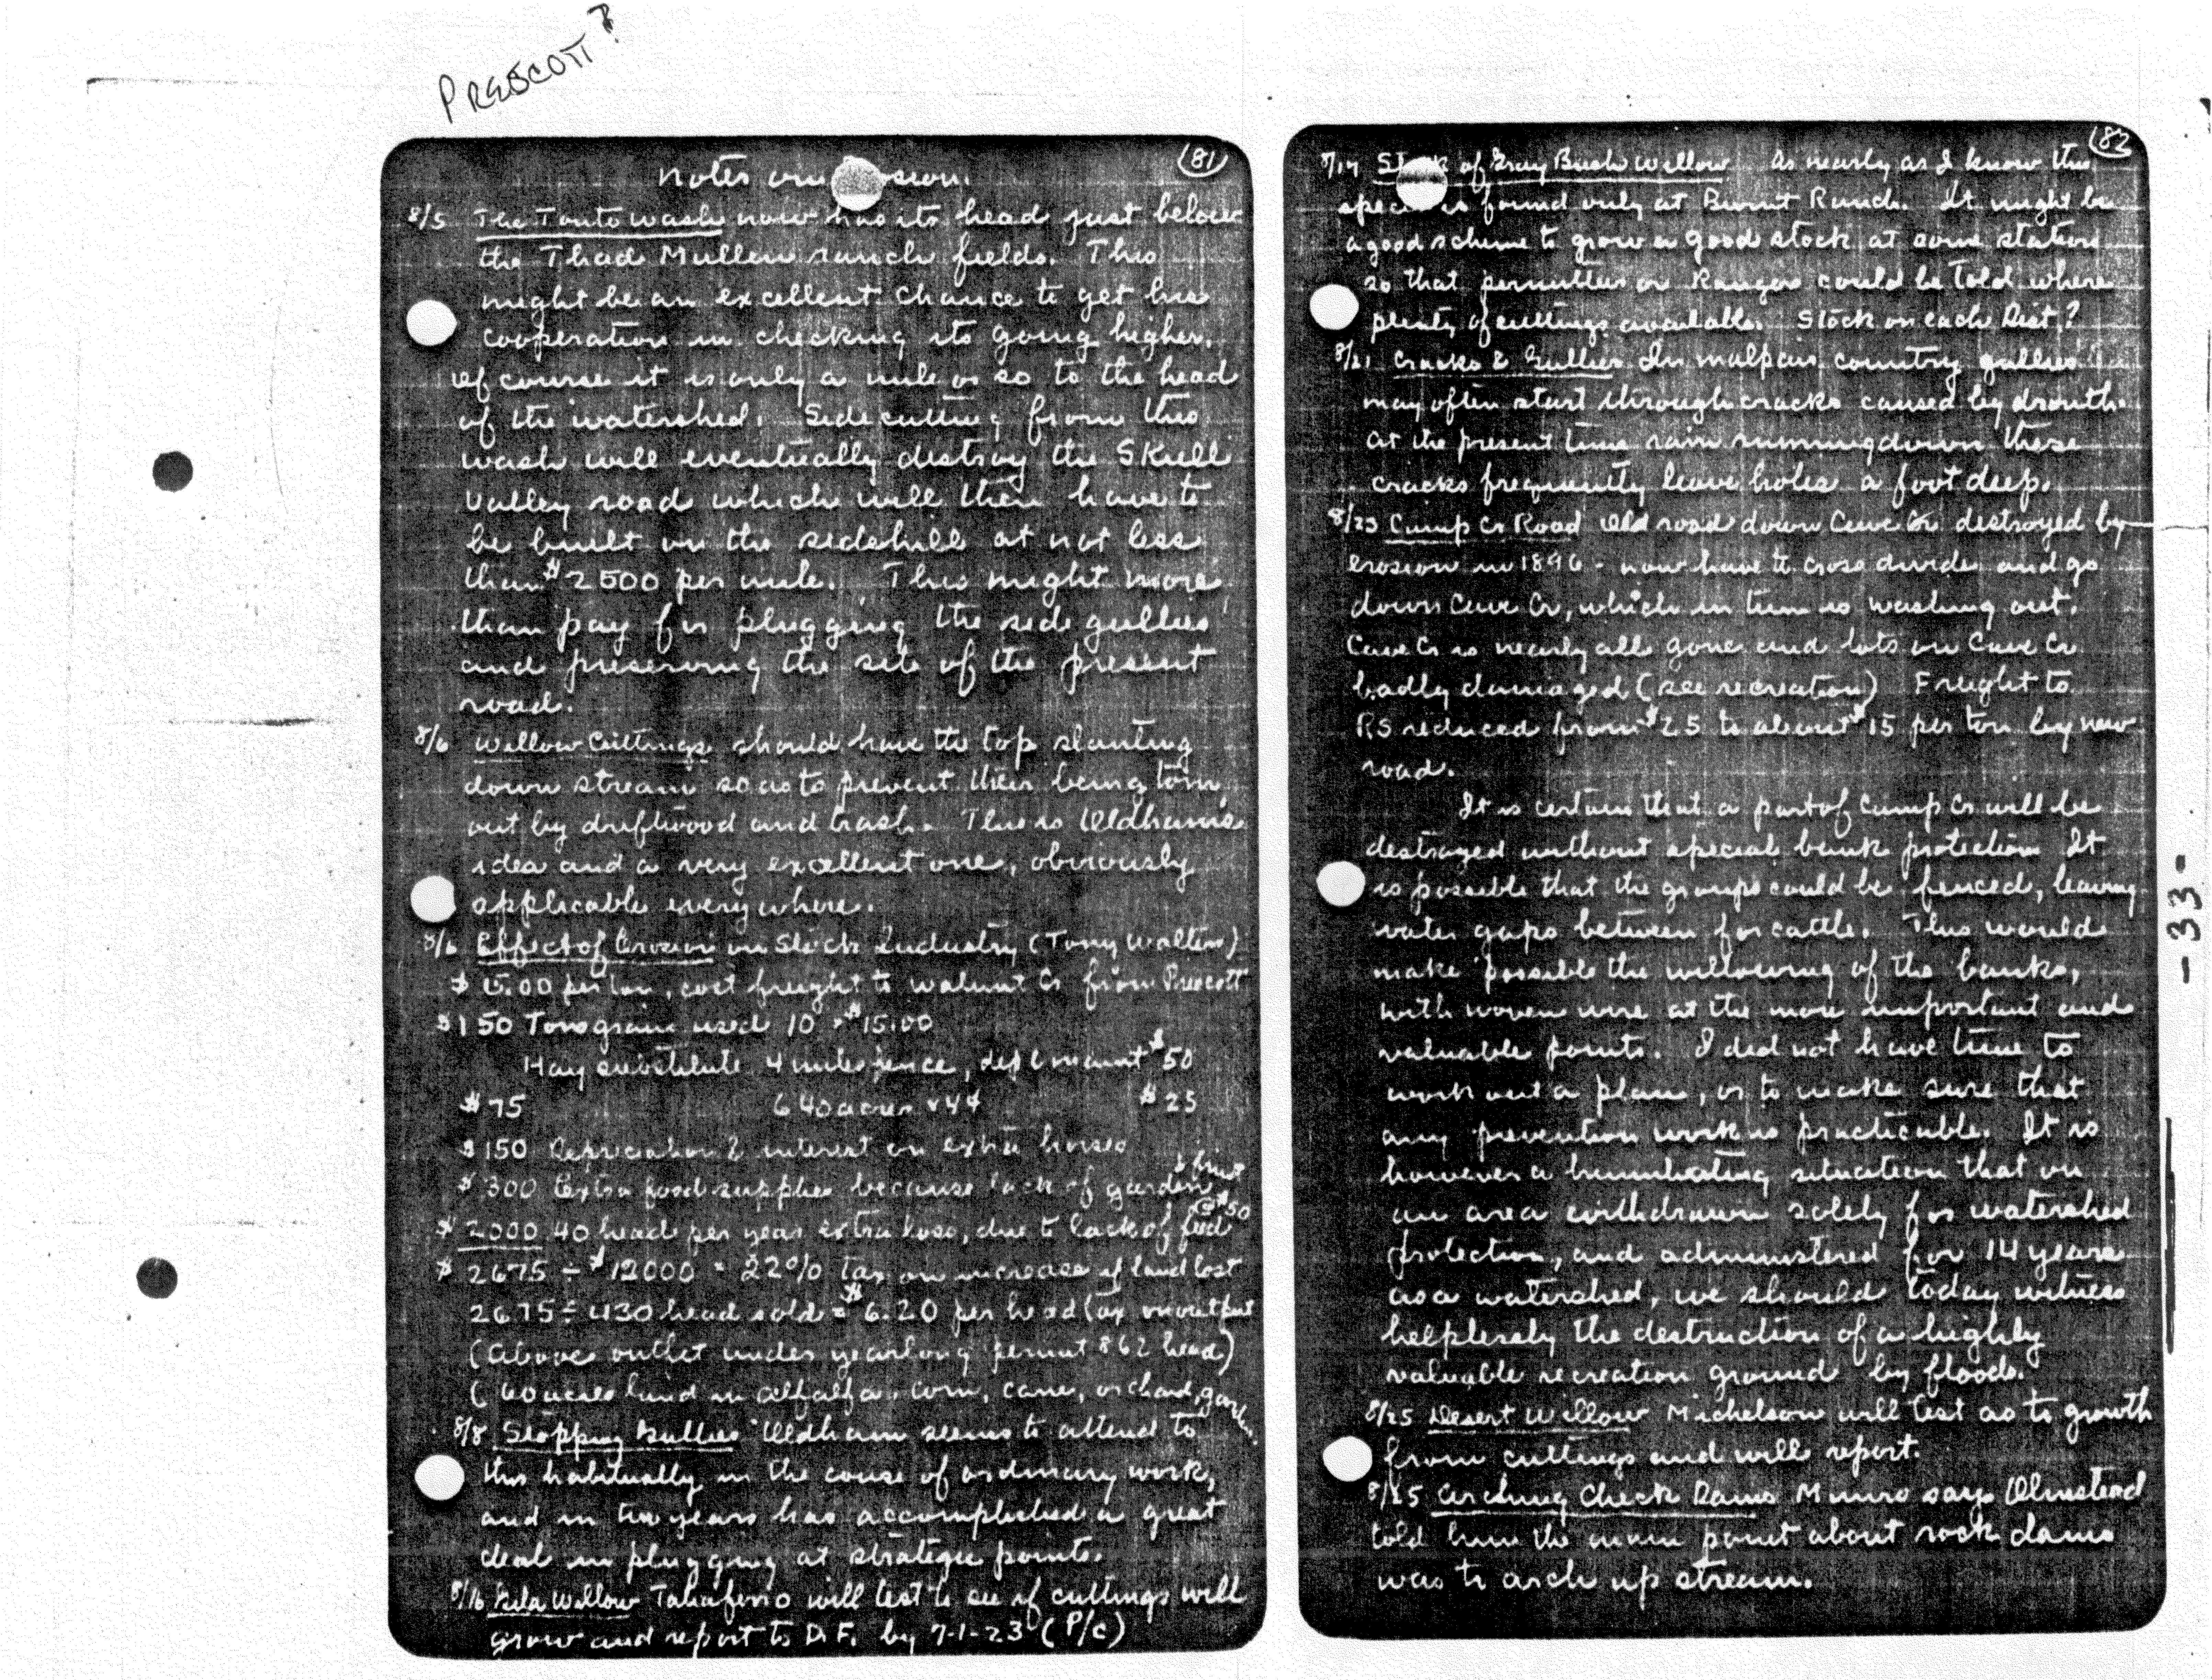 PRESCOTT?
81
Notes on
8/5 The Tonto wash now has its head just below
the Thad Mullen ranch fields. This
might be an excellent chance to get his
cooperation in checking its going higher.
Of course it is only a mile or so to the head
of the watershed. Side cutting from this
wash will eventually destroy the Skull
Valley road which will then have to
be built on the sidehill at not less
than $2500 per mile. This might more
than pay for plugging the side gullies
and preserving the site of the present
road.
8/6 Willow Cuttings should have the top slanting
down stream so as to prevent their being torn
out by driftwood and trash. This is Oldhams
idea and a very excellent one, obviously
applicable everywhere.
8/6 Effect of Erosion on Stock Industry (Tony Walters)
per ton, cost freight to Walnut Cr from Prescott
$150 Tons grain used 10 × $15.00
Hay substitute 4 miles fence, dep & maint $50
$75 640 acres × 4¢ $25
$150 Depreciation & interest on extra horses
$300 Extra food supplies because lack of garden & fruit
$2000 40 head per year extra loss, due to lack of feed @ $50
$2675 ÷ $12000 = 22% Tax on increase of land lost
2675 ÷ 430 head sold = $6.20 per head tax on output
(Above outlet under yearlong permit 862 head)
(60 acres land in alfalfa, corn, cane, orchard, garden.
8/8 Stopping Gullies Oldham seems to attend to
this habitually in the couse of ordinary work,
and in two years has accomplished a great
deal in plugging at strategic points.
8/16 Gila Willow will test to see if cuttings will
grow and report to D.F. by 7-1-23 (P/c)
82
of Gray Bush Willow As nearly as I know this
is found only at Burnt Ranch. It might be
a good scheme to grow a good stock at some station
so that permittees or Rangers could be told where
plenty of cuttings available. Stock on each Dist?
8/21 Cracks & Gullies In malpais country gullies
may often start through cracks caused by drouth.
At the present time rain running down these
cracks frequently leave holes a foot deep.
8/23 Camp Cr Road Old road down Cave Cr destroyed by
erosion in 1896 - now have to cross divide and go
down Cave Cr, which in turn is washing out.
Cave Cr is nearly all gone and lots on Cave Cr
badly damaged (see recreation) Freight to
RS reduced from $25 to about $15 per ton by new
road.
It is certain that a part of Camp Cr will be
destroyed without special bank protection It
is possible that the groups could be fenced, leaving
water gaps between for cattle. This would
make possible the willowing of the banks,
with woven wire at the more important and
valuable points. I did not have time to
work out a plan, or to make sure that
any prevention work is practicable. It is
however a humiliating situation that on
an area withdrawn solely for watershed
protection, and administered for 14 years
as a watershed, we should today witness
helplessly the destruction of a highly
valuable recreation ground by floods.
8/25 Desert Willow Michelson will test as to growth
from cuttings and will report.
8/25 Arching Check Dams Munro says Olmstead
told him the main point about rock dams
was to arch up stream.
-33-